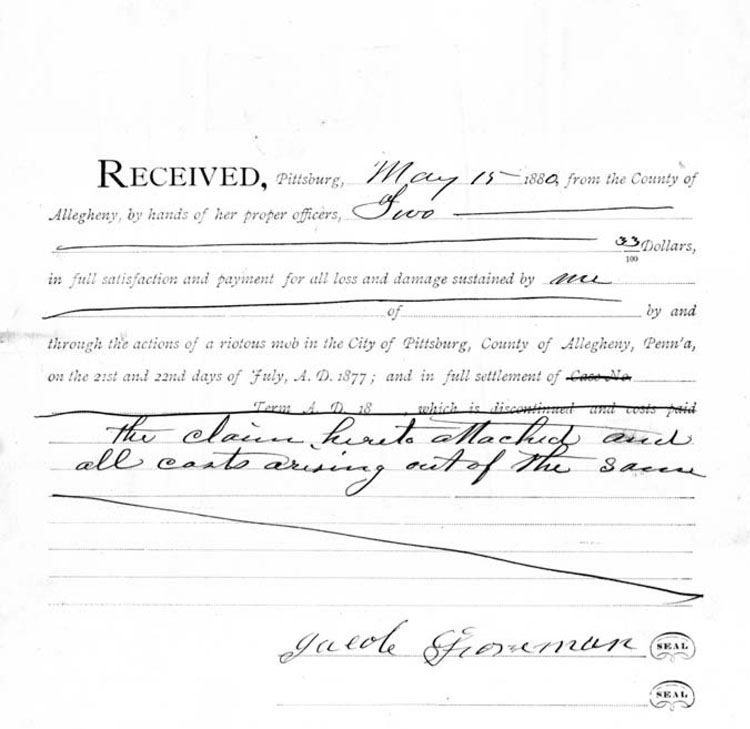 RECEIVED, Pittsburg, May 15 1880, from the County of
Allegheny, by hands of her proper officers, Two
33/100 Dollars,
in full satisfaction and payment for all loss and damage sustained by me
of by and
through the actions of a riotous mob in the City of Pittsburg, County of Allegheny, Penn'a,
on the 21st and 22nd days of July, A. D. 1877; and in full settlement of Case No.
Term A. D. 18 , which is discontinued and costs paid
the claim hereto attached and
all costs arising out of the same
Jacob SEAL
SEAL